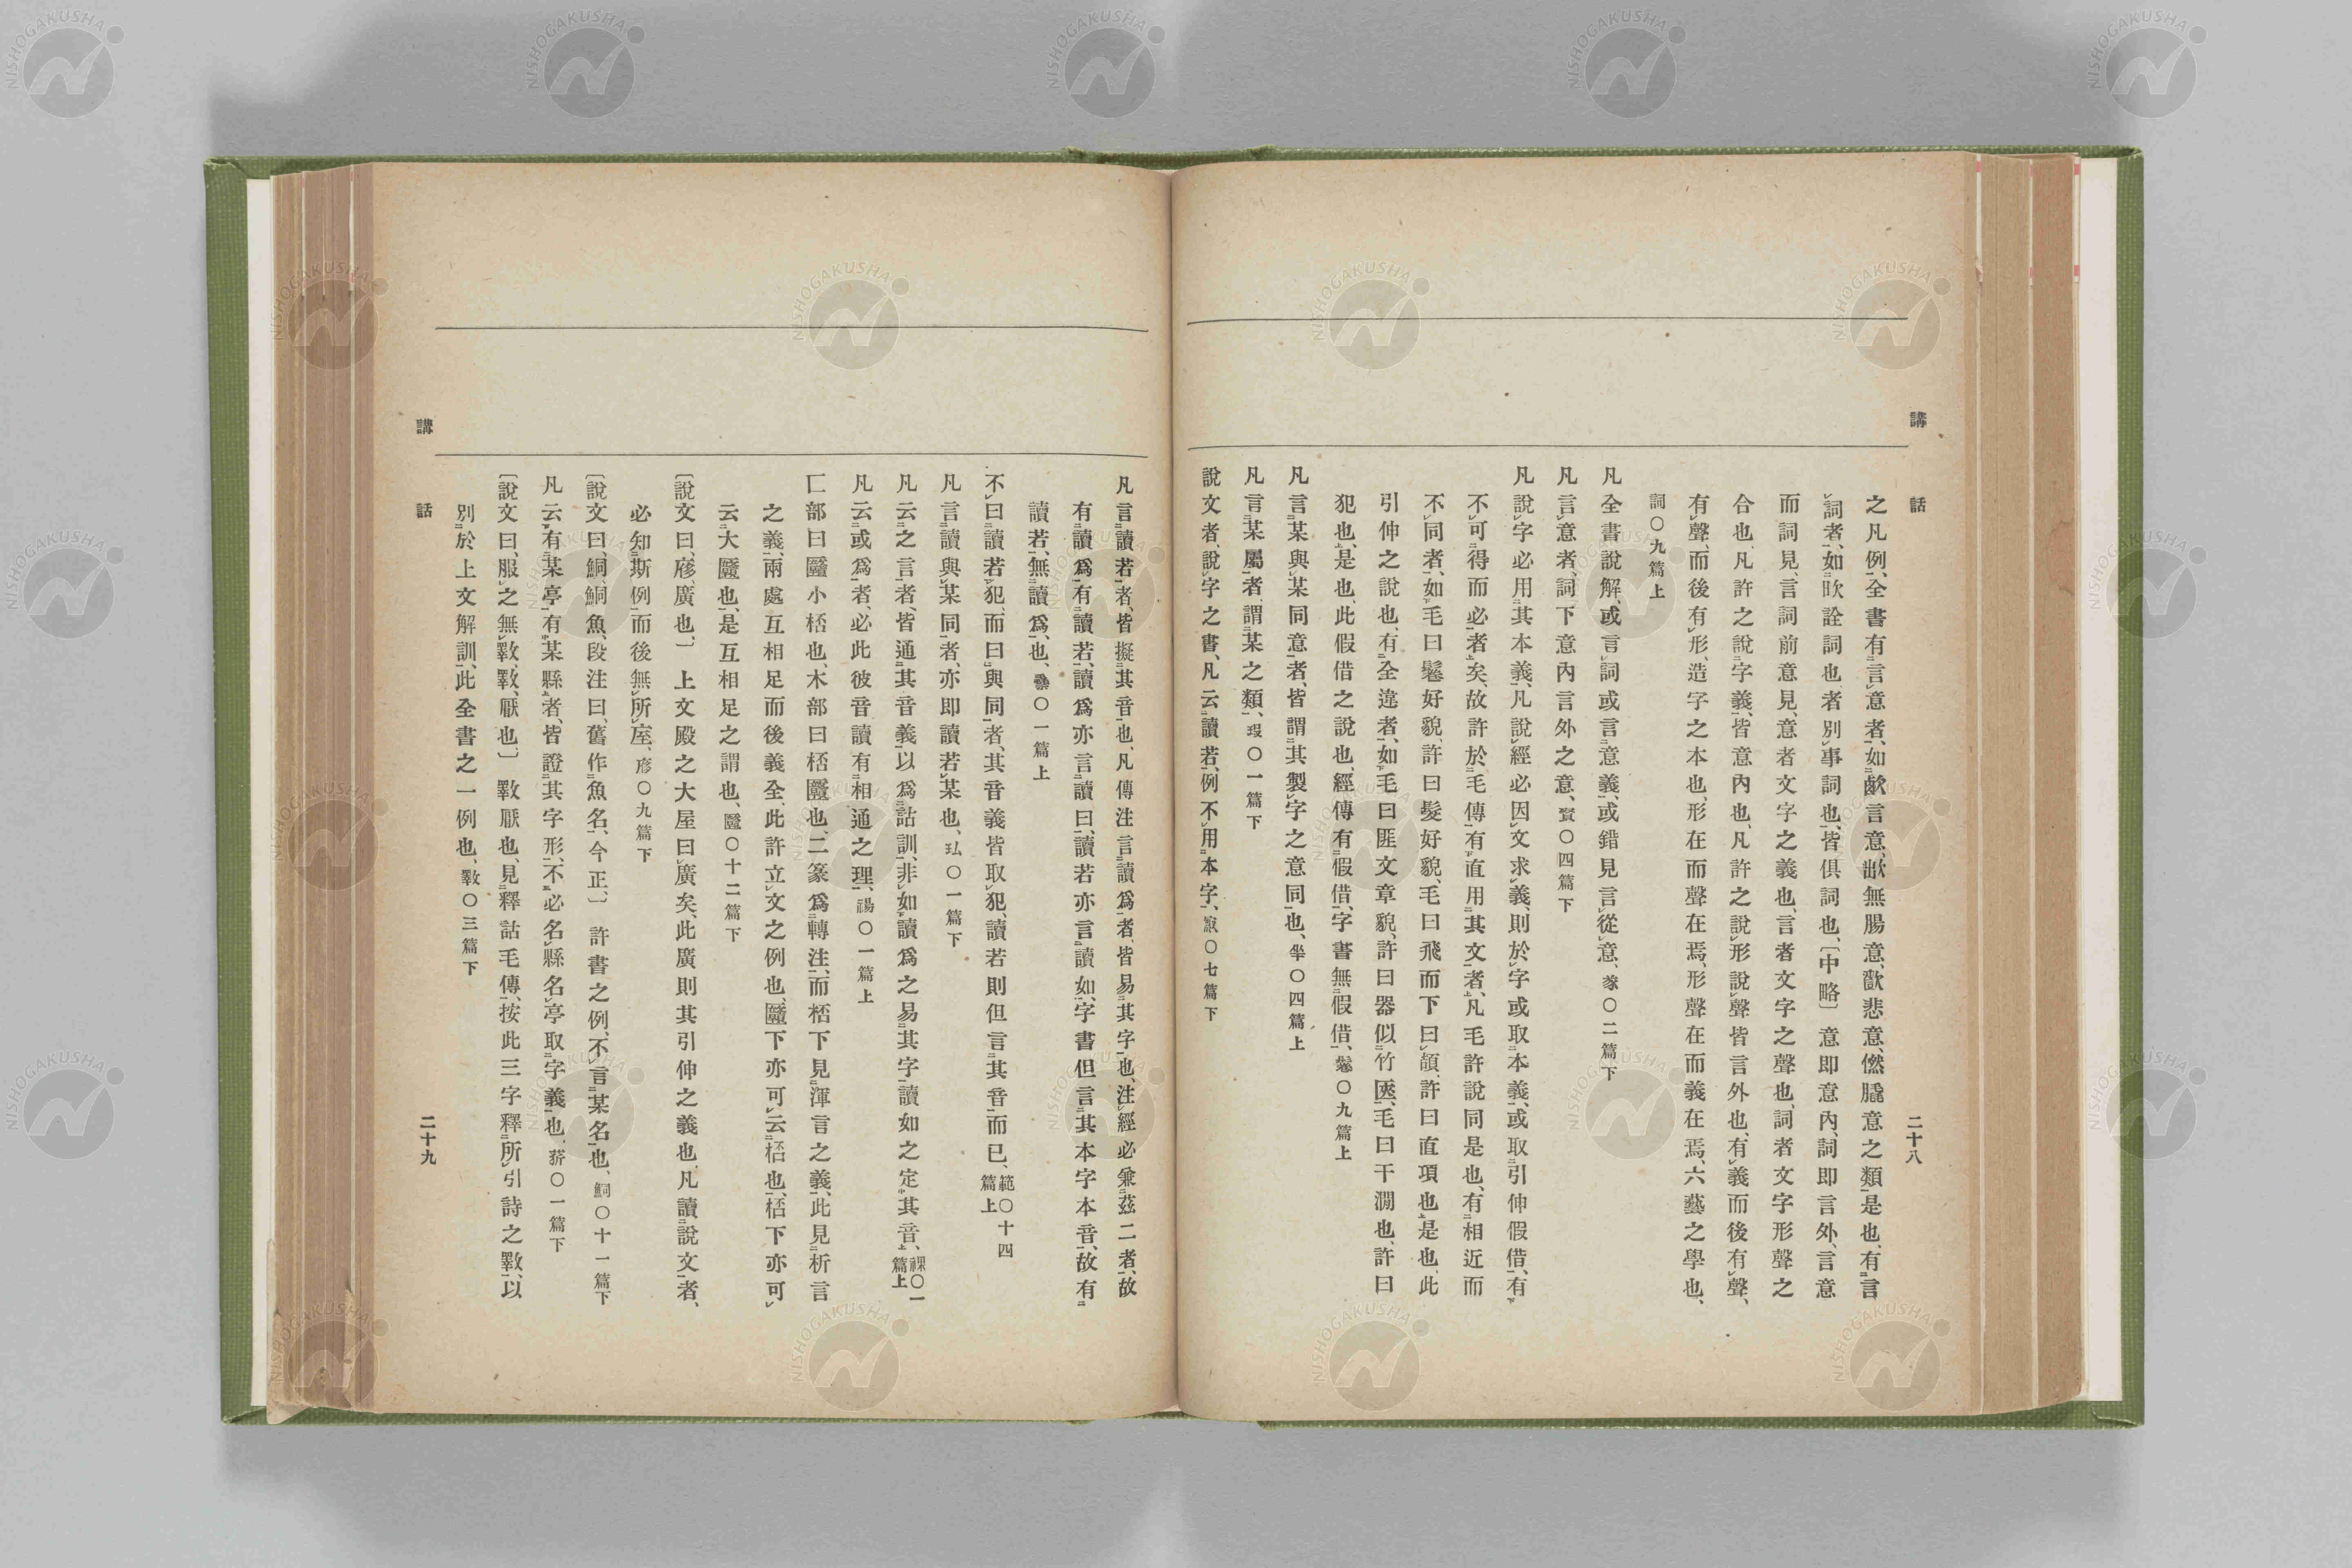 講話
二十八
之凡例、全書有言意者、如歔言意、歔無腸意、歡悲意、僬𦠄意之類是也、有言
詞者、如欥詮詞也、者別事詞也、皆俱詞也、〔中略〕意即意內、詞即言外、言意
而詞見、言詞前意見、意者文字之義也、言者文字之聲也、詞者文字形聲之
合也、凡許之說字義、皆意內也、凡許之說形說聲皆言外也、有義而後有聲、
有聲而後有形、造字之本也、形在而聲在焉、形聲在而義在焉、六藝之學也、
詞〇九篇上
凡全書說解、或言詞或言意義、或錯見言從意、㒸〇二篇下
凡言意者、詞下意內言外之意、賓〇四篇下
凡說字必用其本義、凡說經必因文求義、則於字或取本義、或取引伸假借、有
不可得而必者矣、故許於毛傳有直用其文者、凡毛許說同是也、有相近而
不同者、如毛曰鬈好貌、許曰髮好貌、毛曰飛而下曰頏、許曰直項也是也、此
引伸之說也、有全違者、如毛曰匪文章貌、許曰器似竹匧、毛曰干澗也、許曰
犯也、是也、此假借之說也、經傳有假借、字書無假借、鬈〇九篇上
凡言某與某同意者、皆謂其製字之意同也、𠦒〇四篇上
凡言某屬者、謂某之類、瑕〇一篇下
說文者、說字之書、凡云讀若、例不用本字、㝮〇七篇下
凡言讀若者、皆擬其音也、凡傳注言讀爲者、皆易其字也、注經必兼茲二者、故
有讀爲、有讀若、讀爲亦言讀曰、讀若亦言讀如、字書但言其本字本音、故有
讀若、無讀爲、也、𥛱〇一篇上
不曰讀若犯、而曰與同者、其音義皆取犯、讀若則但言其音而已、範〇十四篇上
凡言讀與某同者、亦即讀若某也、玜〇一篇下
凡云之言者、皆通其音義以爲詁訓、非如讀爲之易其字、讀如之定其音、祼〇一篇上
凡云或爲者、必此彼音讀有相通之理、禓〇一篇上
匚部曰匶小桮也、木部曰桮匶也、二篆爲轉注、而桮下見渾言之義、此見析言
之義、兩處互相足而後義全、此許立文之例也、匶下亦可云桮也、桮下亦可
云大匶也、是互相足之謂也、匶〇十二篇下
〔說文曰、㢋、廣也、〕上文殿之大屋曰廣矣、此廣則其引伸之義也、凡讀說文者、
必知斯例、而後無所窒、㢋〇九篇下
〔說文曰、鮦、鮦魚、段注曰、舊作魚名、今正、〕許書之例、不言某名也、鮦〇十一篇下
凡云有某亭有某縣者、皆證其字形、不必名縣名亭取字義也、莽〇一篇下
〔說文曰、服之無斁、斁、厭也、〕斁厭也、見釋詁毛傳、按此三字釋所引詩之斁、以
別於上文解訓、此全書之一例也、斁〇三篇下
講話
二十九